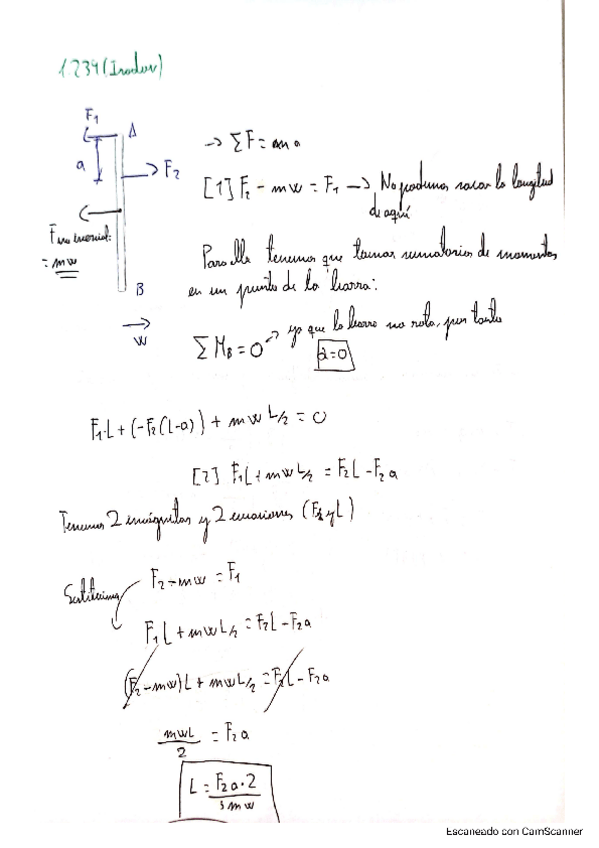 1.234 (Irodov)
F₁ A
a F₂
F no inercial:
= mw
B
w
→ ΣF = m a
[1] F₂ - mw = F₁ → No podemos sacar la longitud
de aquí
Para ello tenemos que tomar sumatorios de momentos
en un punto de la barra:
Σ M_B = 0 ya que la barra no rota, por tanto
α = 0
F₁·L + (-F₂(L-a)) + mw L/2 = 0
[2] F₁L + mw L/2 = F₂L - F₂a
Tenemos 2 incógnitas y 2 ecuaciones (F₂ y L)
F₂ - mw = F₁
F₁L + mw L/2 = F₂L - F₂a
(F₂ - mw)L + mw L/2 = F₂L - F₂a
mwL/2 = F₂a
L = F₂a·2 / mw
Escaneado con CamScanner